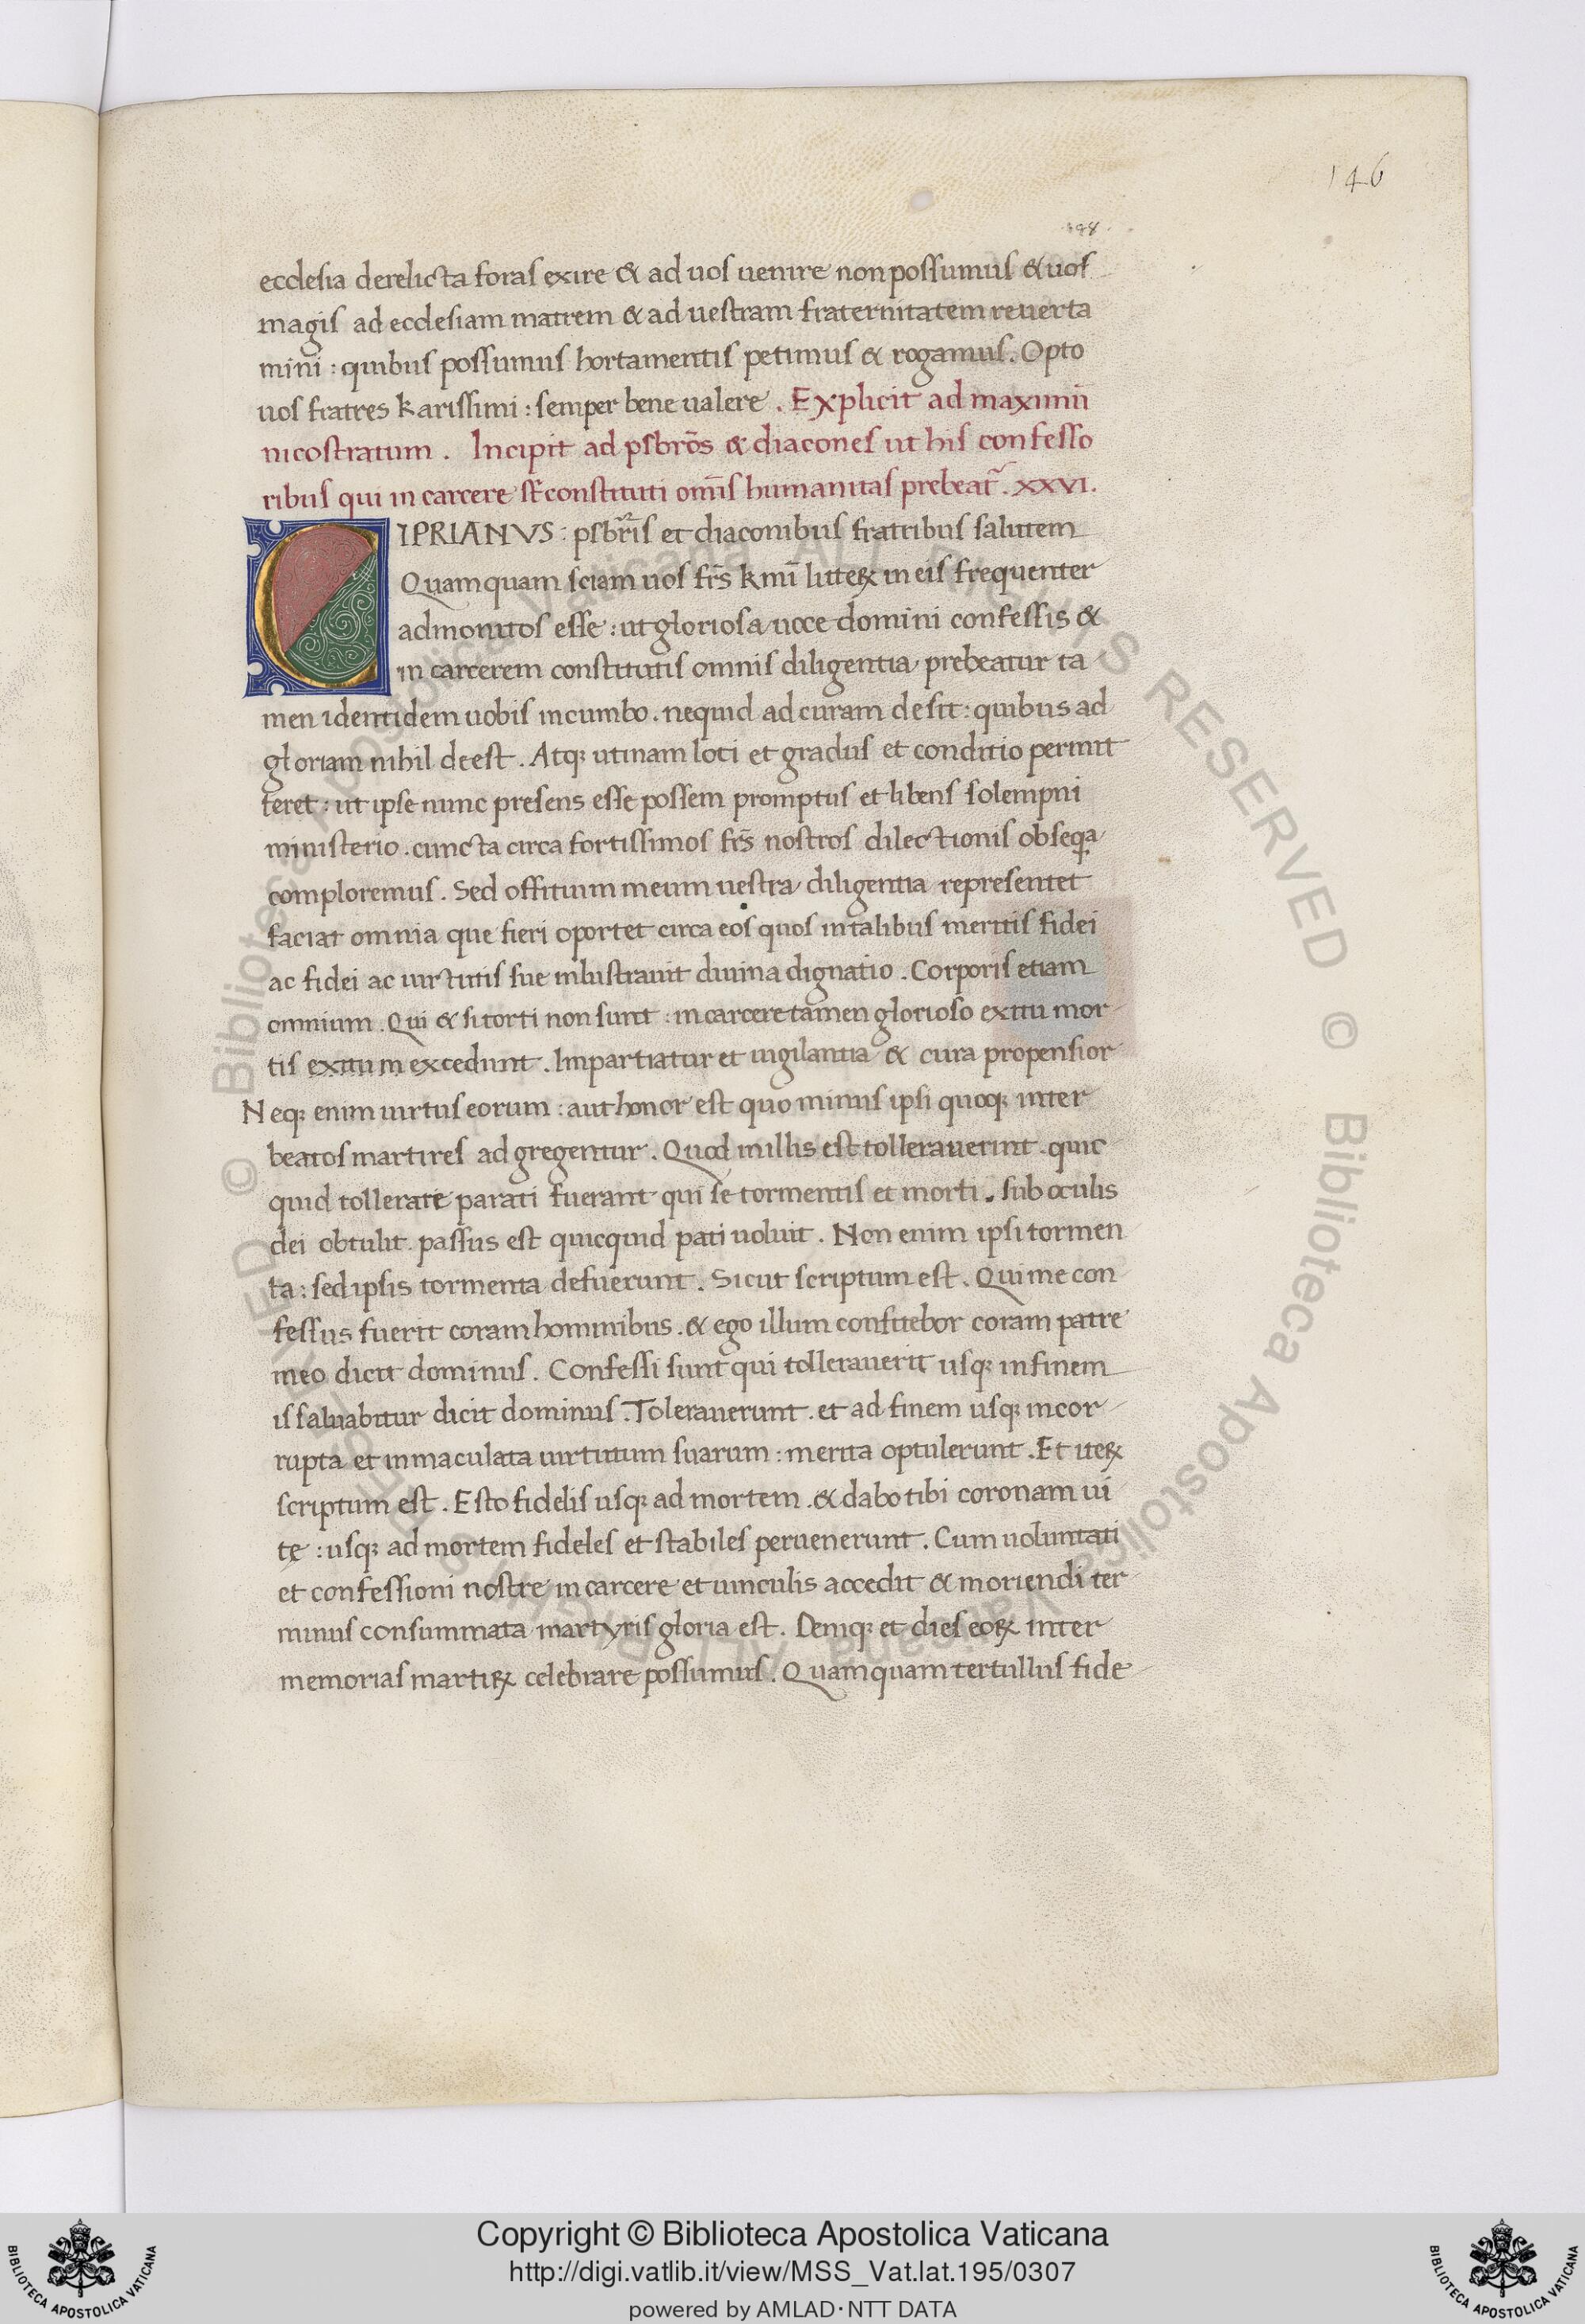 146
148
ecclesia derelicta foras exire & ad uos uenire non possumus & uos
magis ad ecclesiam matrem & ad uestram fraternitatem reuerta
mini : quibus possumus hortamentis petimus & rogamus . Opto
uos fratres karissimi : semper bene ualere . Explicit ad maximū
nicostratum . Incipit ad psbrōs & diacones ut his confesso
ribus qui in carcere st̄ constituti om̄s humanitas prebeat᷑ . XXVI .
CIPRIANVS : psbr̄is et diaconibus fratribus salutem
Quamquam sciam uos frs̄ kmī litteꝝ in eis frequenter
admonitos esse : ut gloriosa uoce domini confessis &
in carcerem constitutis omnis diligentia prebeatur ta
men identidem uobis incumbo . nequid ad curam desit : quibus ad
gloriam nihil deest . Atq; utinam loci et gradus et conditio permit
teret : ut ipse nunc presens esse possem promptus et libens solempni
ministerio . cuncta circa fortissimos frs̄ nostros dilectionis obseqa
comploremus . Sed offitium meum uestra diligentia representet
faciat omnia que fieri oportet circa eos quos in talibus meritis fidei
ac fidei ac uirtutis sue inlustrauit diuina dignatio . Corporis etiam
omnium . Qui & si torti non sunt : in carcere tamen glorioso exitu mor
tis exitum excedunt . Impartiatur et uigilantia & cura propensior
Neq; enim uirtus eorum : aut honor est quo minus ipsi quoq; inter
beatos martires ad gregentur . Quod in illis est tollerauerint . quic
quid tollerare parati fuerant qui se tormentis et morti . sub oculis
dei obtulit . passus est quicquid pati uoluit . Non enim ipsi tormen
ta : sed ipsis tormenta defuerunt . Sicut scriptum est . Qui me con
fessus fuerit coram hominibus . & ego illum confitebor coram patre
meo dicit dominus . Confessi sunt qui tollerauerit usq; in finem
is saluabitur dicit dominus . Tolerauerunt . et ad finem usq; incor
rupta et inmaculata uirtutum suarum : merita optulerunt . Et iteꝝ
scriptum est . Esto fidelis usq; ad mortem . & dabo tibi coronam ui
tę : usq; ad mortem fideles et stabiles peruenerunt . Cum uoluntati
et confessioni nostre in carcere et uinculis accedit & moriendi ter
minus consummata martyris gloria est . Deniq; et dies eoꝝ inter
memorias martiꝝ celebrare possumus . Quamquam tertullus fide
© Biblioteca Apostolica Vaticana ALL RIGHTS RESERVED © Biblioteca Apostolica Vaticana ALL RIGHTS RESERVED
Copyright © Biblioteca Apostolica Vaticana
http://digi.vatlib.it/view/MSS_Vat.lat.195/0307
powered by AMLAD·NTT DATA
BIBLIOTECA APOSTOLICA VATICANA
BIBLIOTECA APOSTOLICA VATICANA